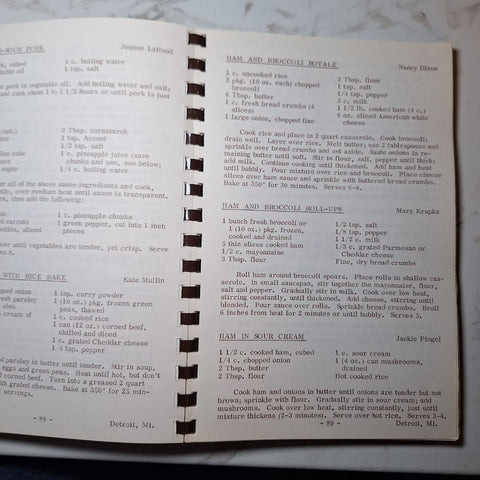 -SOUR PORK Joanne LaHood
, cubed 4 c. boiling water
table oil 1 tsp. salt
pork in vegetable oil. Add boiling water and salt;
and cook about 1 to 1 1/2 hours or until pork is just
2 Tbsp. cornstarch
1 tsp. Accent
1/2 tsp. salt
llon cube 1 c. pineapple juice (save
chunks and use, see below)
sugar 1/4 c. boiling water
er all of the above sauce ingredients and cook,
ntly, over medium heat until sauce is transparent.
ork, then add the following:
1 c. pineapple chunks
d carrots 1 green pepper, cut into 1 inch
ickles, sliced pieces
wer until vegetables are tender, yet crisp. Serve
WITH RICE BAKE Kate Mullin
pped onion 1 tsp. curry powder
resh parsley 1 (10 oz.) pkg. frozen green
oleo peas, thawed
cream of 1 c. cooked rice
1 can (12 oz.) corned beef,
chilled and diced
1 c. grated Cheddar cheese
1/4 tsp. pepper
d parsley in butter until tender. Stir in soup,
eggs and green peas. Heat until hot, but don't
corned beef. Turn into a greased 2 quart
with grated cheese. Bake at 350° for 25 min-
servings.
- 88 -
Detroit, Mi.
HAM AND BROCCOLI ROYALE Nancy Dixon
1 c. uncooked rice 3 Tbsp. flour
2 pkg. (10 oz. each) chopped 1 tsp. salt
broccoli 1/4 tsp. pepper
6 Tbsp. butter 3 c. milk
1 c. fresh bread crumbs (4 1 1/2 lb. cooked ham (4 c.)
slices) 8 oz. sliced American white
1 large onion, chopped fine cheese
Cook rice and place in 2 quart casserole. Cook broccoli;
drain well. Layer over rice. Melt butter; use 2 tablespoons and
sprinkle over bread crumbs and set aside. Saute onions in re-
maining butter until soft. Stir in flour, salt, pepper until thick;
add milk. Continue cooking until thickened. Add ham and heat
until bubbly. Pour mixture over rice and broccoli. Place cheese
slices over ham sauce and sprinkle with buttered bread crumbs.
Bake at 350° for 30 minutes. Serves 6-8.
HAM AND BROCCOLI ROLL-UPS Mary Krupka
1 bunch fresh broccoli or 1/2 tsp. salt
1 (10 oz.) pkg. frozen, 1/8 tsp. pepper
cooked and drained 1 1/2 c. milk
5 thin slices cooked ham 1/3 c. grated Parmesan or
1/2 c. mayonnaise Cheddar cheese
3 Tbsp. flour Fine, dry bread crumbs
Roll ham around broccoli spears. Place rolls in shallow cas-
serole. In small saucepan, stir together the mayonnaise, flour,
salt and pepper. Gradually stir in milk. Cook over low heat,
stirring constantly, until thickened. Add cheese, stirring until
blended. Pour sauce over rolls. Sprinkle bread crumbs. Broil
6 inches from heat for 2 minutes or until bubbly. Serves 5.
HAM IN SOUR CREAM Jackie Pingel
1 1/2 c. cooked ham, cubed 1 c. sour cream
1/4 c. chopped onion 1 (4 oz.) can mushrooms,
2 Tbsp. butter drained
2 Tbsp. flour Hot cooked rice
Cook ham and onions in butter until onions are tender but not
brown; sprinkle with flour. Gradually stir in sour cream; add
mushrooms. Cook over low heat, stirring constantly, just until
mixture thickens (2-3 minutes). Serve over hot rice. Serves 3-4.
- 89 - Detroit, Mi.